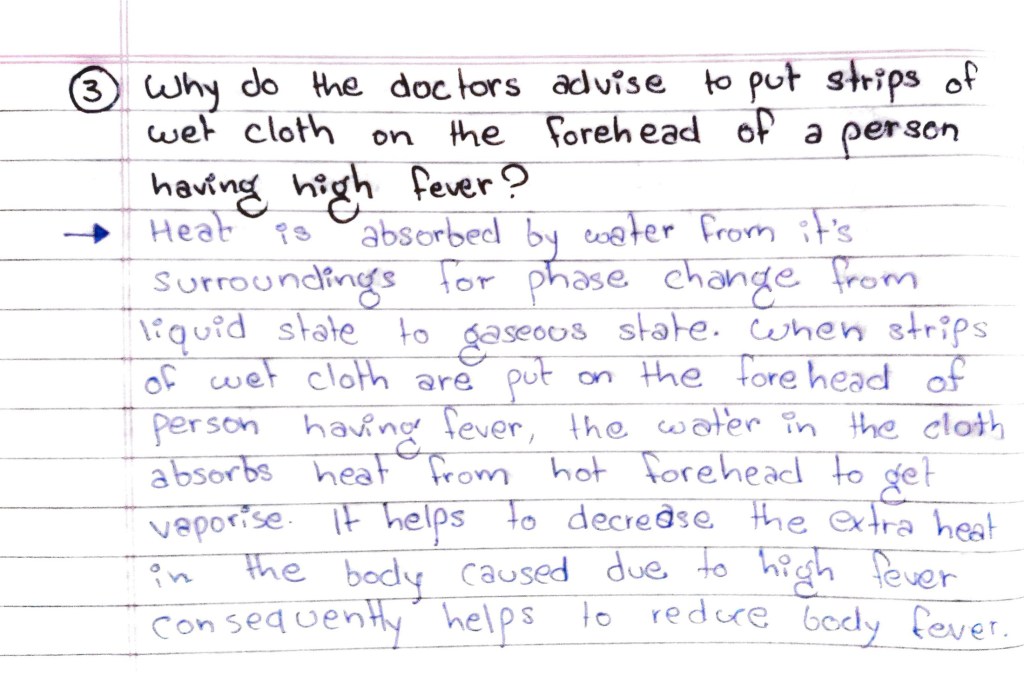 ③ Why do the doctors advise to put strips of
wet cloth on the forehead of a person
having high fever?
→ Heat is absorbed by water from it's
surroundings for phase change from
liquid state to gaseous state. When strips
of wet cloth are put on the forehead of
person having fever, the water in the cloth
absorbs heat from hot forehead to get
vaporise. It helps to decrease the extra heat
in the body caused due to high fever
consequently helps to reduce body fever.